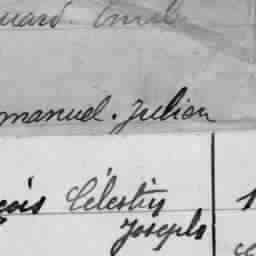 uard. Emile
manuel. Julien
çois Célestin
Joseph